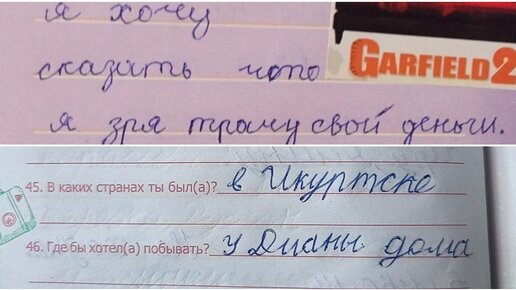 я хочу
сказать что
GARFIELD 2
я зря трачу свой деньги.
45. В каких странах ты был(а)? в Икуртске
46. Где бы хотел(а) побывать? у Дианы дома